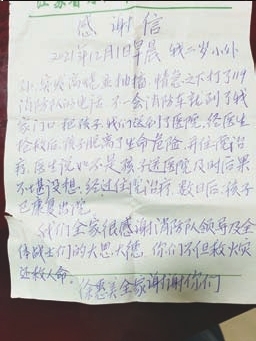 江苏省
感谢信
2021年12月1日早晨 我二岁小外
孙,突发高烧并抽搐,情急之下打了119
消防队的电话,不一会消防车就到了我
家门口,把孩子,我们送到了医院,经医生
抢救后,孩子脱离了生命危险,并住院治
疗,医生说如不是孩子送医院及时后果
不堪设想。经过住院治疗数日后,孩子
已康复出院。
我们全家很感谢消防队领导及全
体战士们的大恩大德,你们不但救火灾
还救人命。
全家谢谢你们